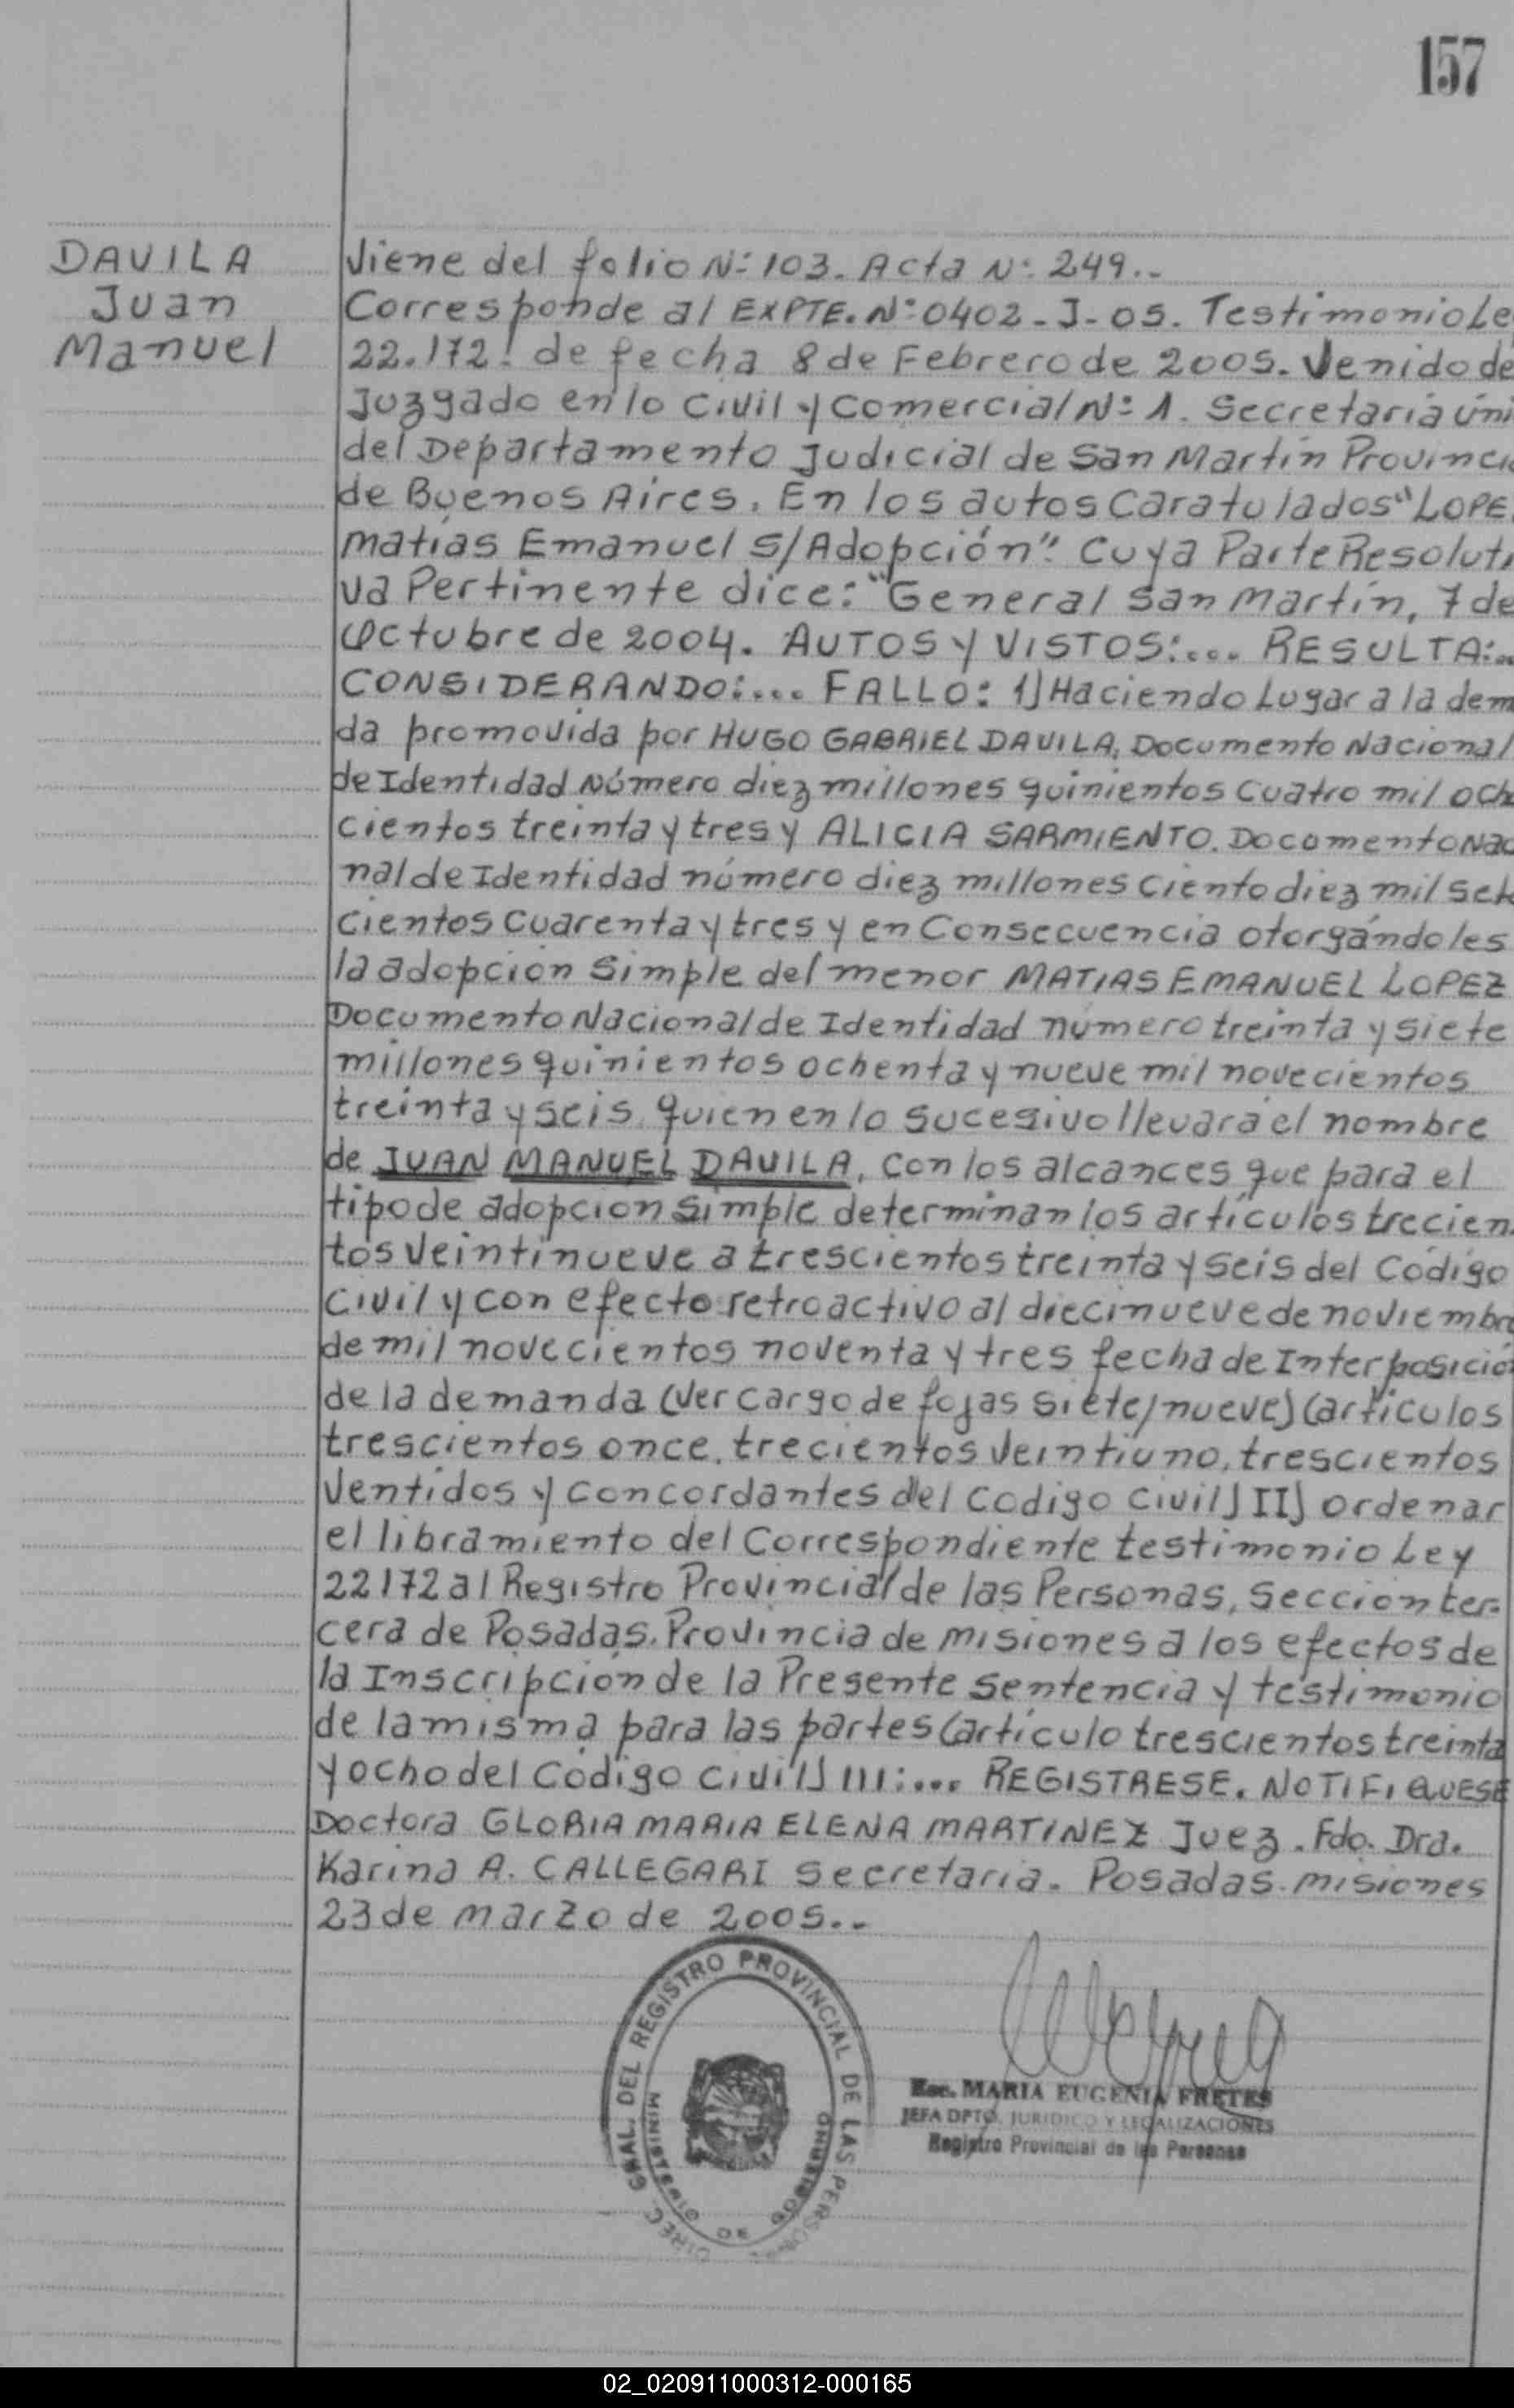 157
DAVILA
Juan
Manuel
Viene del folio N: 103. Acta N: 249..
Corresponde al EXPTE. N: 0402-J-05. Testimonio Le
22.172! de fecha 8 de Febrero de 2005. Venido de
Juzgado en lo Civil y Comercial N: 1. Secretaría Úni
del Departamento Judicial de San Martín Provinci
de Buenos Aires. En los autos Caratulados "LOPE
Matías Emanuel S/Adopción". Cuya Parte Resoluti
va Pertinente dice: "General San Martín, 7 de
Octubre de 2004. AUTOS Y VISTOS:... RESULTA:..
CONSIDERANDO:... FALLO: 1) Haciendo Lugar a la dem
da promovida por HUGO GABRIEL DAVILA, Documento Nacional
de Identidad Número diez millones quinientos cuatro mil och
cientos treinta y tres y ALICIA SARMIENTO. Documento Nac
nal de Identidad número diez millones ciento diez mil set
cientos cuarenta y tres y en Consecuencia otorgándoles
la adopción Simple del menor MATIAS EMANUEL LOPEZ
Documento Nacional de Identidad número treinta y siete
millones quinientos ochenta y nueve mil novecientos
treinta y seis, quien en lo sucesivo llevará el nombre
de JUAN MANUEL DAVILA, con los alcances que para el
tipo de adopción simple determinan los artículos trecien
tos veintinueve a trescientos treinta y seis del Código
Civil y con efecto retroactivo al diecinueve de noviembre
de mil novecientos noventa y tres fecha de Interposició
de la demanda (ver cargo de fojas siete/nueve) (artículos
trescientos once, trecientos veintiuno, trescientos
ventidos y concordantes del Codigo Civil) II) ordenar
el libramiento del Correspondiente testimonio Ley
22172 al Registro Provincial de las Personas, Sección ter-
cera de Posadas. Provincia de Misiones a los efectos de
la Inscripción de la Presente Sentencia y testimonio
de la misma para las partes (artículo trescientos treinta
y ocho del Código Civil) III:... REGISTRESE. NOTIFIQUESE
Doctora GLORIA MARIA ELENA MARTINEZ Juez. Fdo. Dra.
Karina A. CALLEGARI Secretaria. Posadas. Misiones
23 de Marzo de 2005..
DIREC. GRAL. DEL REGISTRO PROVINCIAL DE LAS PERSONAS
MINISTERIO DE GOBIERNO
Esc. MARIA EUGENIA FRETES
JEFA DPTO. JURIDICO Y LEGALIZACIONES
Registro Provincial de las Personas
02_020911000312-000165